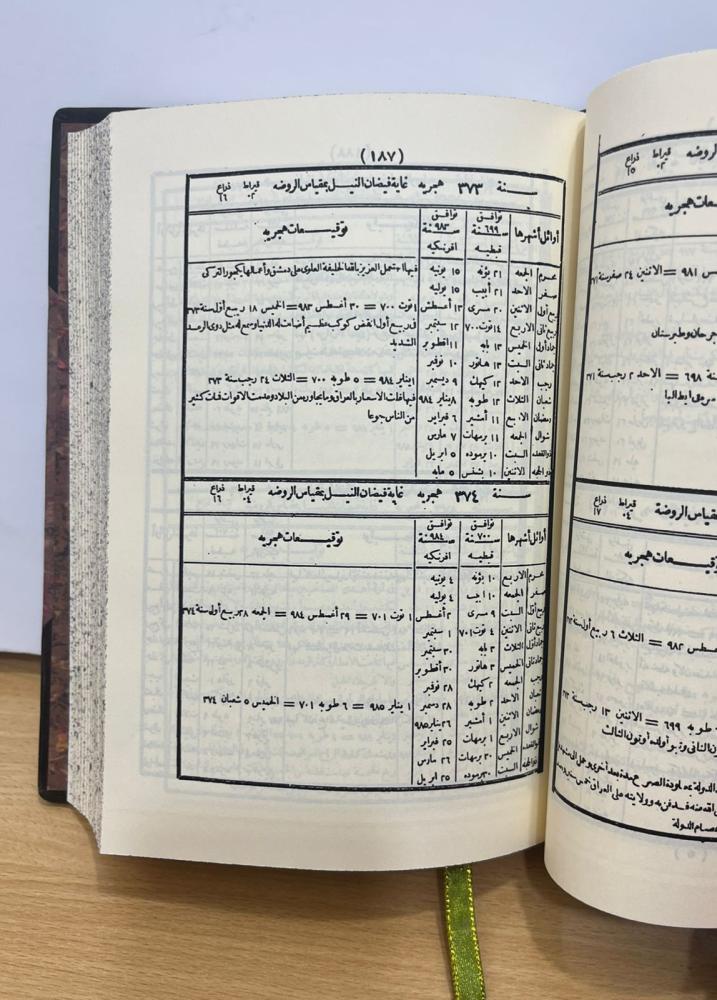 (١٨٧)
سنة ٣٧٣ هجريه غاية فيضان النيل بمقياس الروضه قيراط ٢٠ ذراع ١٦
أوائل أشهرها توافق سنة ٦٩٩ قبطيه توافق سنة ٩٨٣ افرنكيه توقيعات هجريه
محرم الجمعه ٢١ بؤنه ١٥ يونيه فيها احتمل العزيز بالله الخليفة العلوى على دمشق وأعمالها بكجور التركى
صفر الاحد ٢١ أبيب ١٥ يوليه
ربيع أول الاثنين ٢٠ مسرى ١٣ أغسطس ١ توت ٧٠٠ = ٣٠ أغسطس ٩٨٣ = الخميس ١٨ ربيع أول سنة ٣٧٣
ربيع ثانى الاربع ١٤ توت ٧٠٠ ١٢ سبتمبر فى ربيع أول انقض كوكب عظيم أضاءت له الدنيا وسمع له مثل دوى الرعد
جماد أول الخميس ١٣ بابه ١١ اقطوبر الشديد
جماد ثانى السبت ١٣ هاتور ١٠ نوفبر
رجب الاحد ١٢ كيهك ٩ ديسمبر ١ يناير ٩٨٤ = ٥ طوبه ٧٠٠ = الثلاث ٢٤ رجب سنة ٣٧٣
شعبان الثلاث ١٢ طوبه ٨ يناير ٩٨٤ فيها غلت الاسعار بالعراق وما يجاوره من البلاد وعدمت الاقوات فمات كثير
رمضان الاربع ١١ أمشير ٦ فبراير من الناس جوعا
شوال الجمعه ١١ برمهات ٧ مارس
ذو القعده السبت ١٠ برموده ٥ ابريل
ذو الحجه الاثنين ١٠ بشنس ٥ مايه
سنة ٣٧٤ هجريه غاية فيضان النيل بمقياس الروضه قيراط ٠٤ ذراع ١٦
أوائل أشهرها توافق سنة ٧٠٠ قبطيه توافق سنة ٩٨٤ افرنكيه توقيعات هجريه
محرم الاربع ١٠ بؤنه ٤ يونيه
صفر الجمعه ١٠ أبيب ٤ يوليه
ربيع أول السبت ٩ مسرى ٢ أغسطس ١ توت ٧٠١ = ٢٩ أغسطس ٩٨٤ = الجمعه ٢٨ ربيع أول سنة ٣٧٤
ربيع ثانى الاثنين ٤ توت ٧٠١ ١ سبتمبر
جماد أول الثلاث ٣ بابه ٣٠ سبتمبر
جماد ثانى الخميس ٣ هاتور ٣٠ أقطوبر
رجب الجمعه ٢ كيهك ٢٨ نوفبر
شعبان الاحد ٢ طوبه ٢٨ دسمبر ١ يناير ٩٨٥ = ٦ طوبه ٧٠١ = الخميس ٥ شعبان ٣٧٤
رمضان الاثنين ١ أمشير ٢٦ يناير ٩٨٥
شوال الاربع ١ برمهات ٢٥ فبراير
ذو القعده الخميس ٣٠ برمهات ٢٦ مارس
ذو الحجه السبت ٣٠ برموده ٢٥ ابريل
الروضه قيراط ٠٢ ذراع ١٥
توقيعات هجريه
٩٨١ = الاثنين ٢٤ صفر سنة ٣٧١
جرجان وطبرستان
سنة ٦٩٨ = الاحد ٢ رجب سنة ٣٧١
بمقياس الروضة قيراط ٠٤ ذراع ١٧
توقيعات هجريه
أغسطس ٩٨٢ = الثلاث ٦ ربيع أول سنة ٣٧٢
طوبه ٦٩٩ = الاثنين ١٣ رجب سنة ٣٧٢
صمصام الدولة